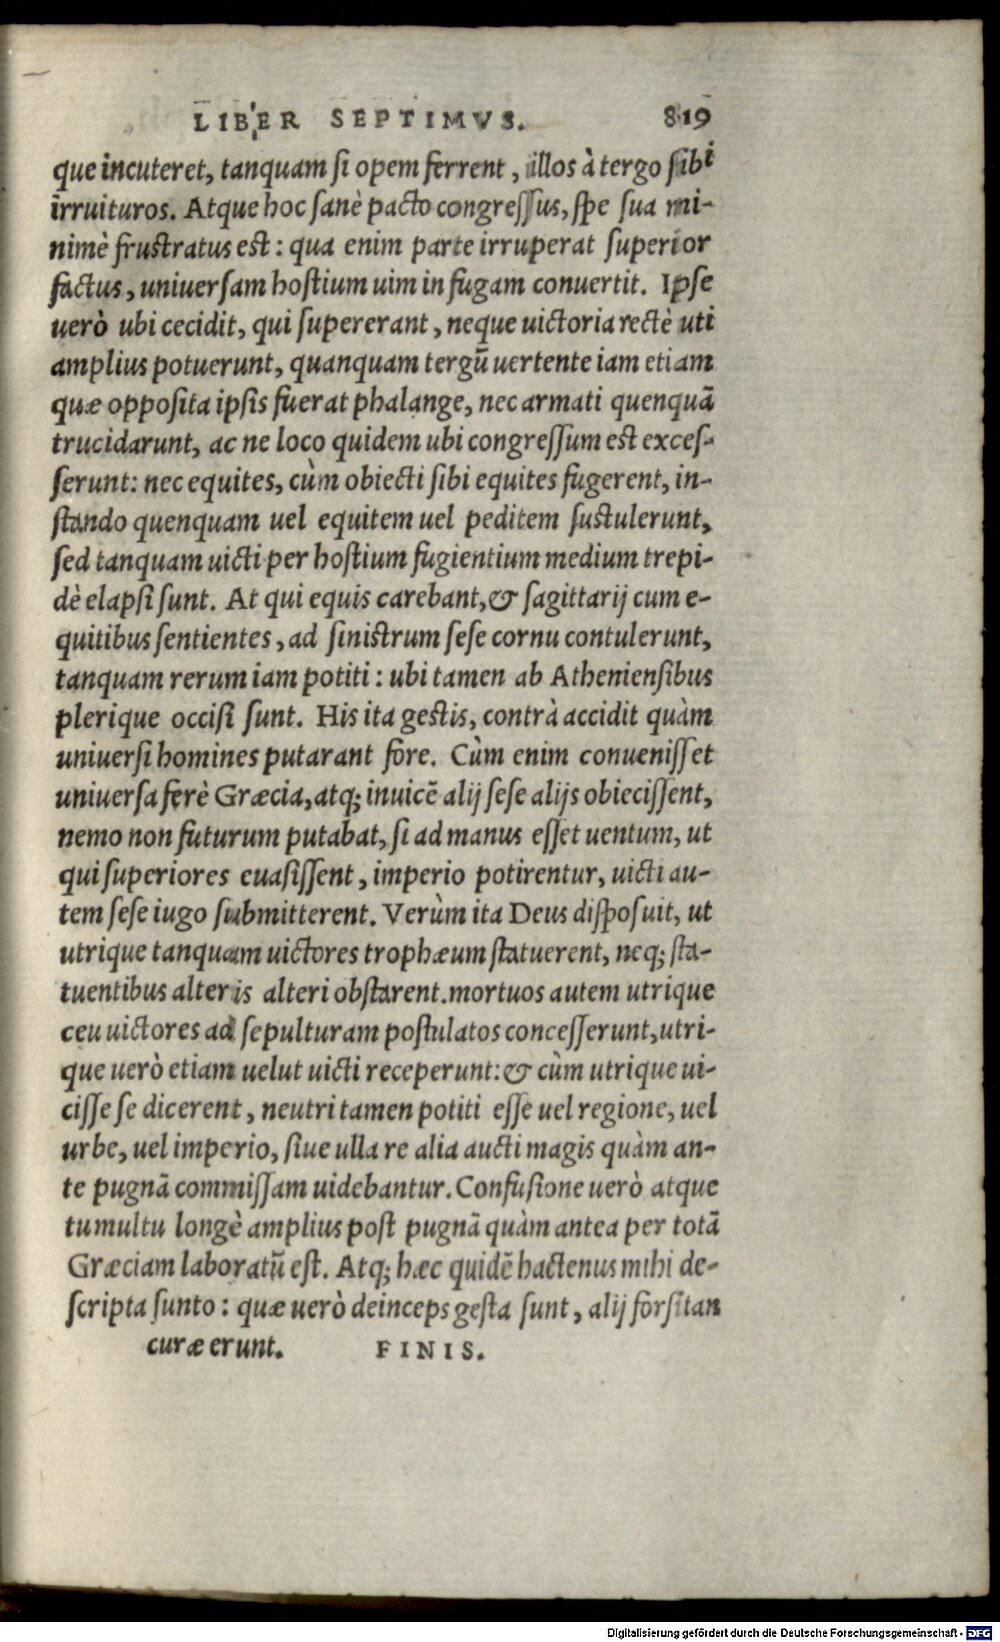 LIBER SEPTIMVS. 819
que incuteret, tanquam si opem ferrent, illos à tergo sibi
irruituros. Atque hoc sanè pacto congressus, spe sua mi-
nimè frustratus est: qua enim parte irruperat superior
factus, uniuersam hostium uim in fugam conuertit. Ipse
uerò ubi cecidit, qui supererant, neque uictoria rectè uti
amplius potuerunt, quanquam tergū uertente iam etiam
quæ opposita ipsis fuerat phalange, nec armati quenquā
trucidarunt, ac ne loco quidem ubi congressum est exces-
serunt: nec equites, cùm obiecti sibi equites fugerent, in-
stando quenquam uel equitem uel peditem sustulerunt,
sed tanquam uicti per hostium fugientium medium trepi-
dè elapsi sunt. At qui equis carebant, & sagittarij cum e-
quitibus sentientes, ad sinistrum sese cornu contulerunt,
tanquam rerum iam potiti: ubi tamen ab Atheniensibus
plerique occisi sunt. His ita gestis, contrà accidit quàm
uniuersi homines putarant fore. Cùm enim conuenisset
uniuersa ferè Græcia, atq; inuicē alij sese alijs obiecissent,
nemo non futurum putabat, si ad manus esset uentum, ut
qui superiores euasissent, imperio potirentur, uicti au-
tem sese iugo submitterent. Verùm ita Deus disposuit, ut
utrique tanquam uictores trophæum statuerent, neq; sta-
tuentibus alteris alteri obstarent. mortuos autem utrique
ceu uictores ad sepulturam postulatos concesserunt, utri-
que uerò etiam uelut uicti receperunt: & cùm utrique ui-
cisse se dicerent, neutri tamen potiti esse uel regione, uel
urbe, uel imperio, siue ulla re alia aucti magis quàm an-
te pugnā commissam uidebantur. Confusione uerò atque
tumultu longè amplius post pugnā quàm antea per totā
Græciam laboratū est. Atq; hæc quidē hactenus mihi de-
scripta sunto: quæ uerò deinceps gesta sunt, alij forsitan
curæ erunt. FINIS.
Digitalisierung gefördert durch die Deutsche Forschungsgemeinschaft - DFG